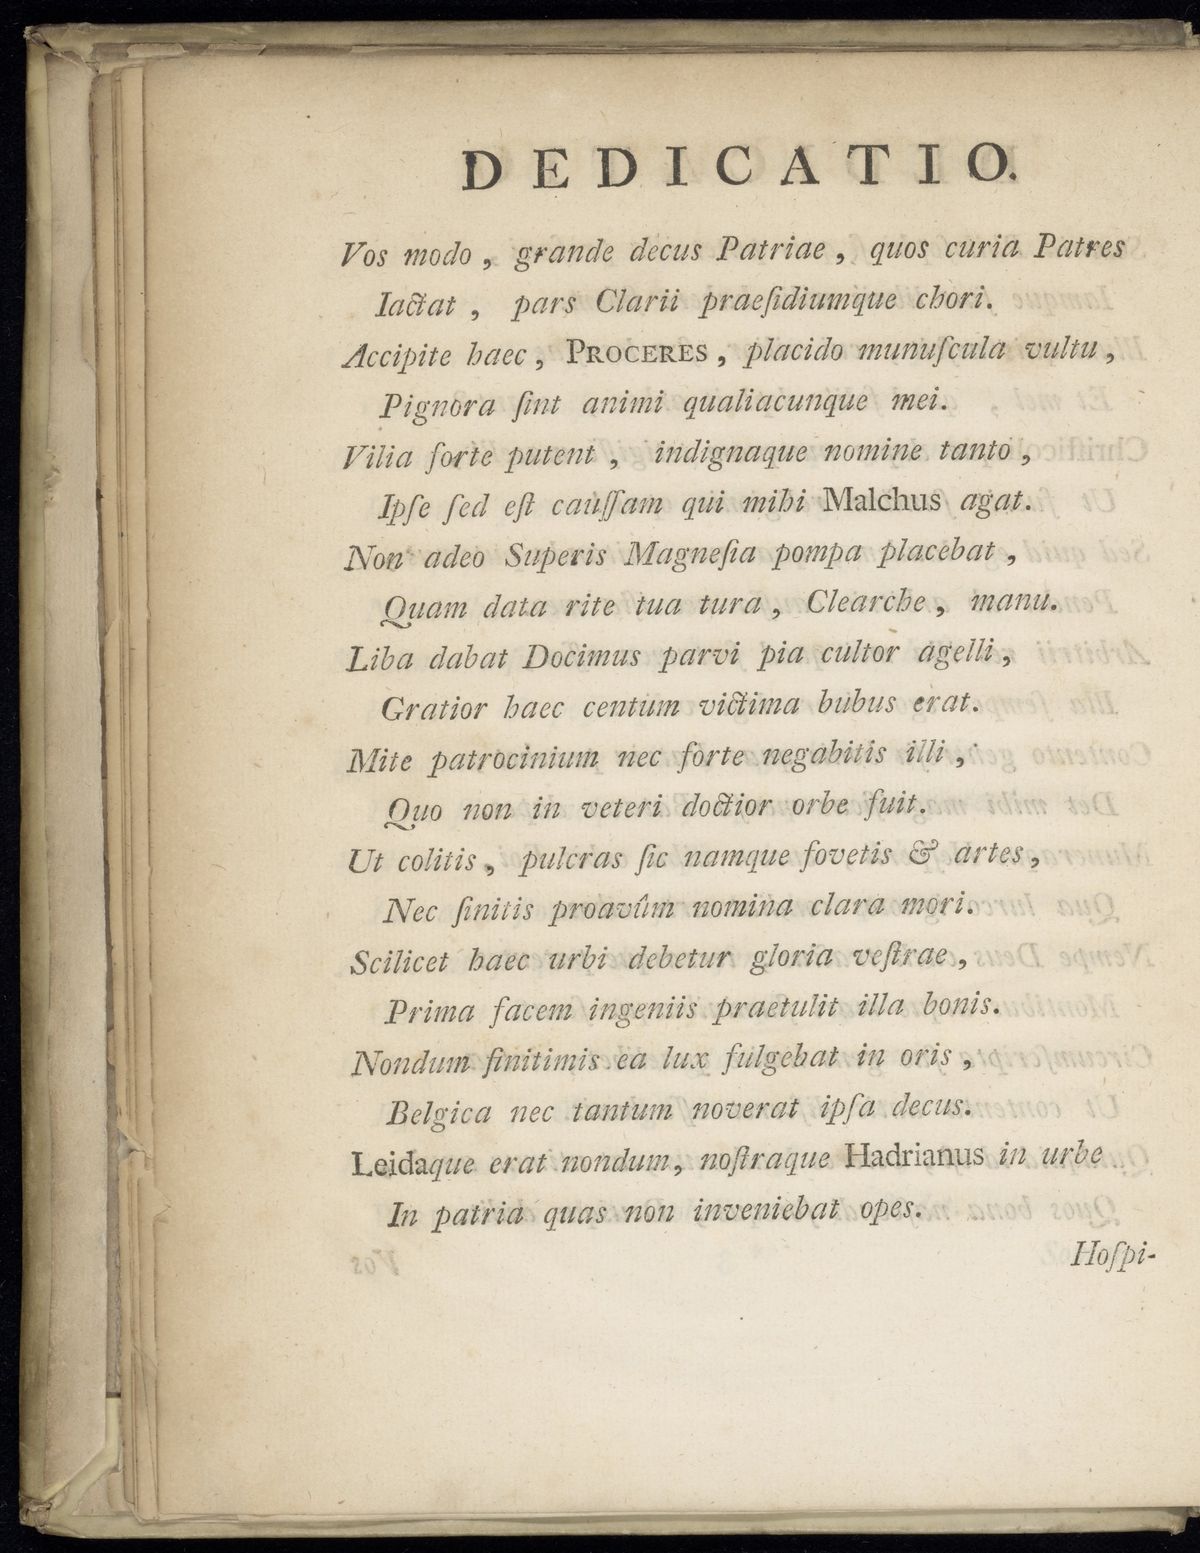 DEDICATIO.
Vos modo, grande decus Patriae, quos curia Patres
Iactat, pars Clarii praeſidiumque chori.
Accipite haec, PROCERES, placido munuſcula vultu,
Pignora ſint animi qualiacunque mei.
Vilia forte putent, indignaque nomine tanto,
Ipſe ſed eſt cauſſam qui mihi Malchus agat.
Non adeo Superis Magneſia pompa placebat,
Quam data rite tua tura, Clearche, manu.
Liba dabat Docimus parvi pia cultor agelli,
Gratior haec centum victima bubus erat.
Mite patrocinium nec forte negabitis illi,
Quo non in veteri doctior orbe fuit.
Ut colitis, pulcras ſic namque fovetis & artes,
Nec ſinitis proavûm nomina clara mori.
Scilicet haec urbi debetur gloria veſtrae,
Prima facem ingeniis praetulit illa bonis.
Nondum finitimis ea lux fulgebat in oris,
Belgica nec tantum noverat ipſa decus.
Leidaque erat nondum, noſtraque Hadrianus in urbe
In patria quas non inveniebat opes.
Hoſpi-